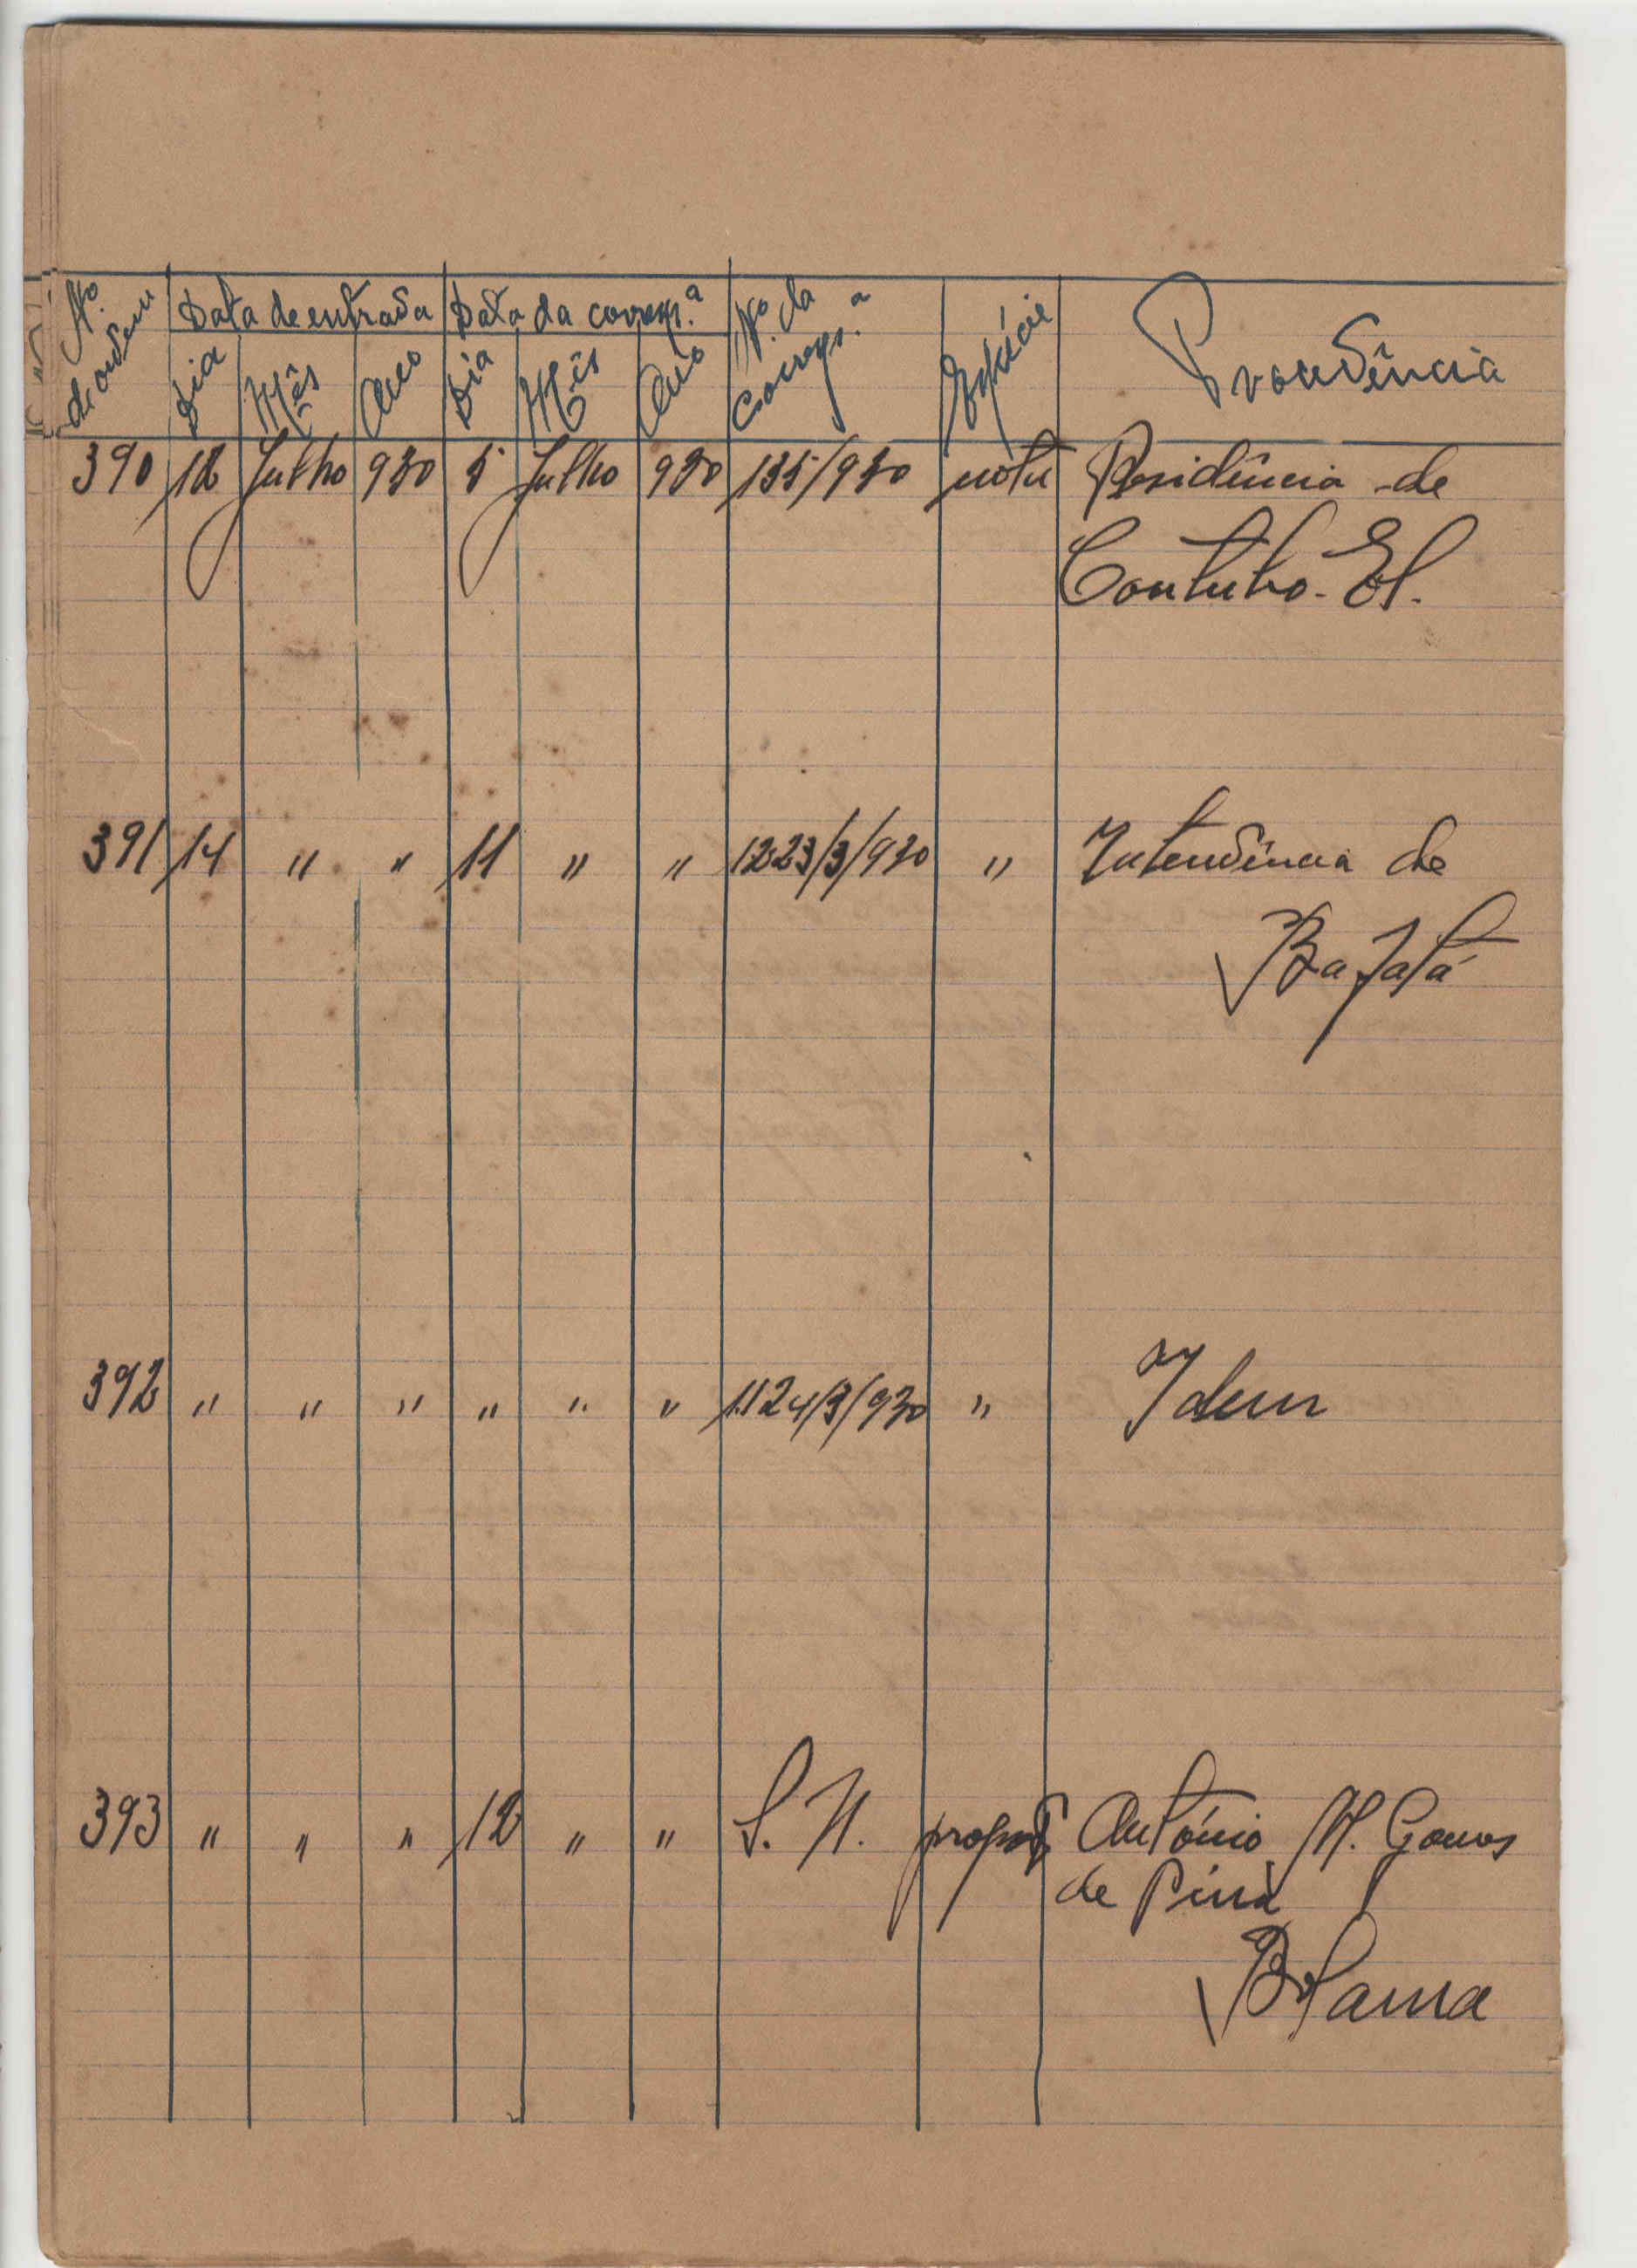 Nº de ordem | Data de entrada | Data da corresp.ª | Nº da Corresp.ª | Espécie | Proveniência
Dia | Mês | Ano | Dia | Mês | Ano
390 | 12 | Julho | 930 | 5 | Julho | 930 | 135/930 | nota | Residência de
Contubo-El.
391 | 14 | " | " | 11 | " | " | 1223/3/930 | " | Intendência de
Bafatá
392 | " | " | " | " | " | " | 1124/3/930 | " | Idem
393 | " | " | " | 12 | " | " | S. N. | António M. Gomes
de Pina
Bolama